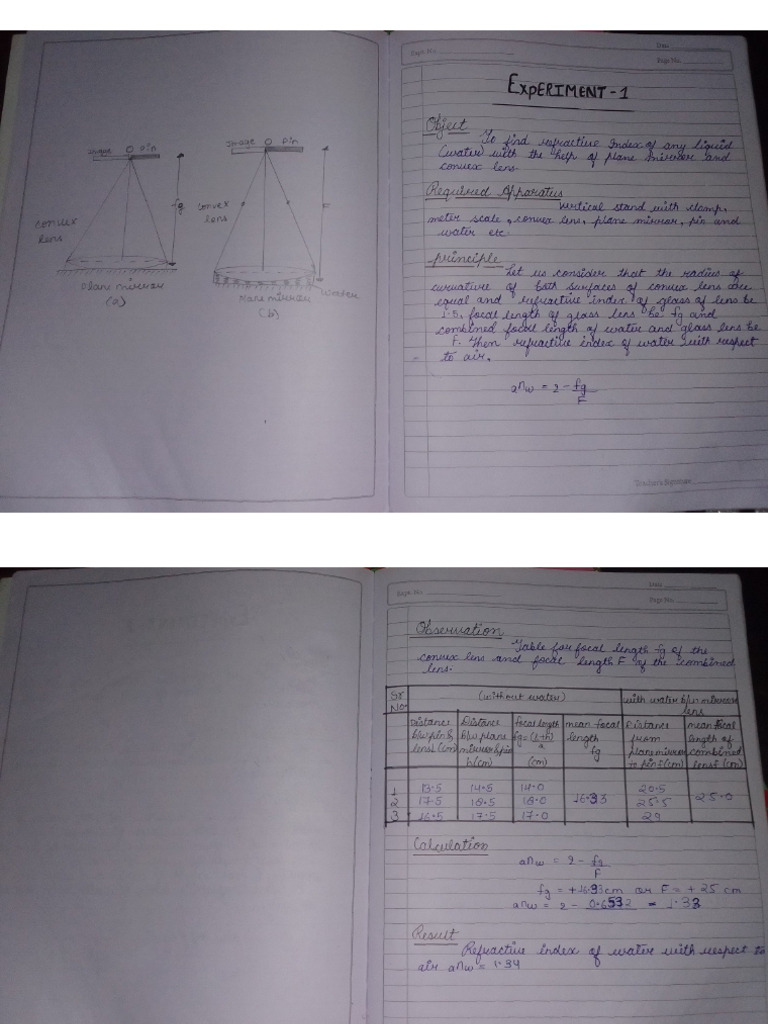 Image O Pin
convex
lens
fg
Plane mirror
(a)
Image O Pin
convex
lens
F
water
Plane mirror
(b)
Expt. No.
Date
Page No.
EXPERIMENT-1
Object
To find refractive Index of any liquid
(water) with the help of plane mirror and
convex lens.
Required Apparatus
Vertical stand with clamp,
meter scale, convex lens, plane mirror, pin and
water etc.
principle
Let us consider that the radius of
curvature of both surfaces of convex lens are
equal and refractive index of glass of lens be
1.5, focal length of glass lens be fg and
combined focal length of water and glass lens be
F. Then refractive index of water with respect
to air.
anw = 2 - fg/F
Teacher's Signature
Expt. No.
Date
Page No.
Observation
Table for focal length fg of the
convex lens and focal length F of the combined
lens.
Sr No. (without water) with water b/w mirror lens
Distance b/w pin & lens (cm) Distance b/w plane mirror & pin h(cm) focal length (cm) mean focal length fg Distance from plane mirror pin (cm) mean focal length of combined lens (cm)
1 13.5 14.5 14.0 20.5
2 17.5 18.5 18.0 16.33 25.5 25.0
3 16.5 17.5 17.0 29
Calculation
anw = 2 - fg/F
fg = +16.33cm or F = + 25 cm
anw = 2 - 0.6532 = 1.33
Result
Refractive index of water with respect to
air anw = 1.34